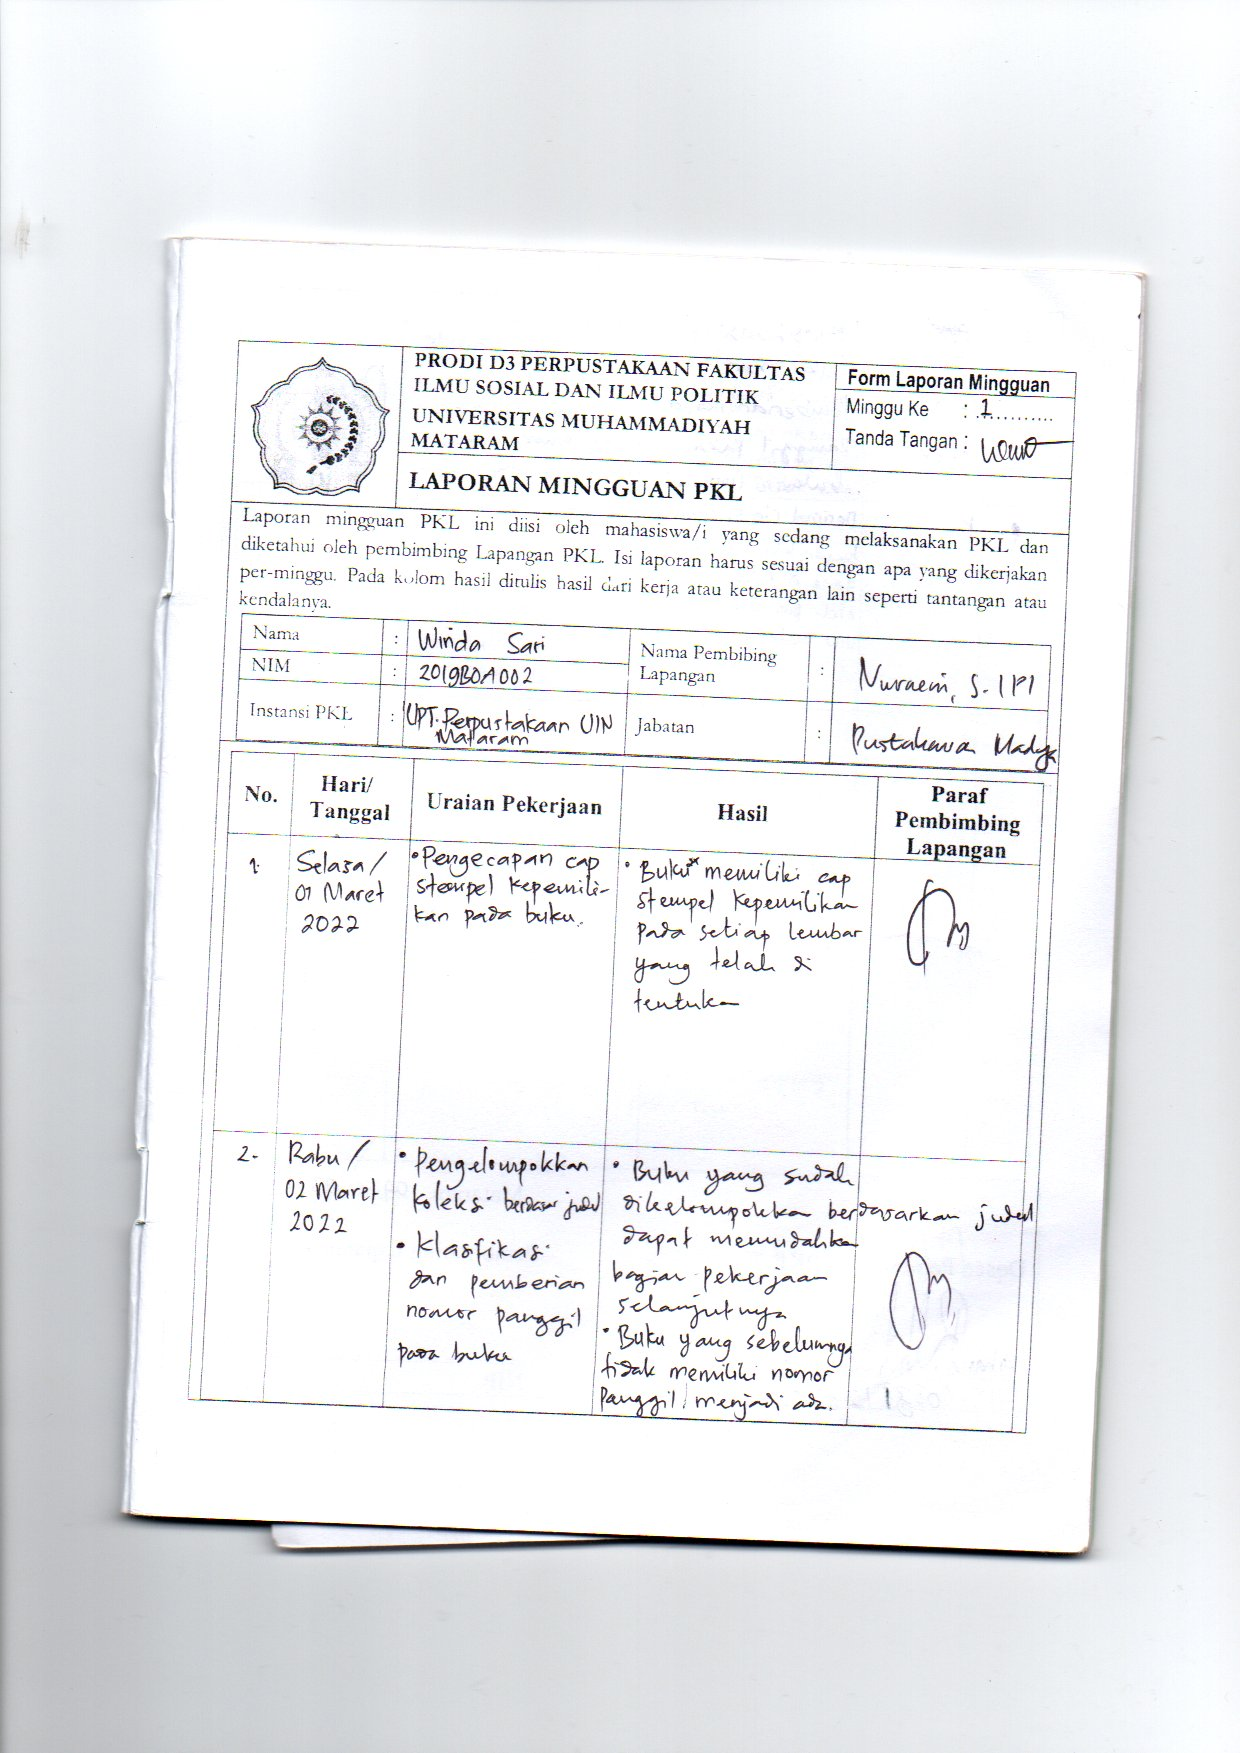 PRODI D3 PERPUSTAKAAN FAKULTAS
ILMU SOSIAL DAN ILMU POLITIK
UNIVERSITAS MUHAMMADIYAH
MATARAM
Form Laporan Mingguan
Minggu Ke : 1
Tanda Tangan :
LAPORAN MINGGUAN PKL
Laporan mingguan PKL ini diisi oleh mahasiswa/i yang sedang melaksanakan PKL dan
diketahui oleh pembimbing Lapangan PKL. Isi laporan harus sesuai dengan apa yang dikerjakan
per-minggu. Pada kolom hasil ditulis hasil dari kerja atau keterangan lain seperti tantangan atau
kendalanya.
Nama : Winda Sari
NIM : 2019B0A002
Nama Pembibing
Lapangan : Nuraeni, S.IPI
Instansi PKL : UPT. Perpustakaan UIN
Mataram
Jabatan : Pustakawan Madya
No.
Hari/
Tanggal
Uraian Pekerjaan
Hasil
Paraf
Pembimbing
Lapangan
1.
Selasa /
01 Maret
2022
• Pengecapan cap
stempel kepemili-
kan pada buku.
• Buku memiliki cap
stempel kepemilikan
pada setiap lembar
yang telah di
tentukan
2.
Rabu /
02 Maret
2022
• Pengelompokkan
koleksi berdasar judul
• Klasifikasi
dan pemberian
nomor panggil
pada buku
• Buku yang sudah
dikelompokkan berdasarkan judul
dapat memudahkan
bagian pekerjaan
selanjutnya
• Buku yang sebelumnya
tidak memiliki nomor
panggil menjadi ada.